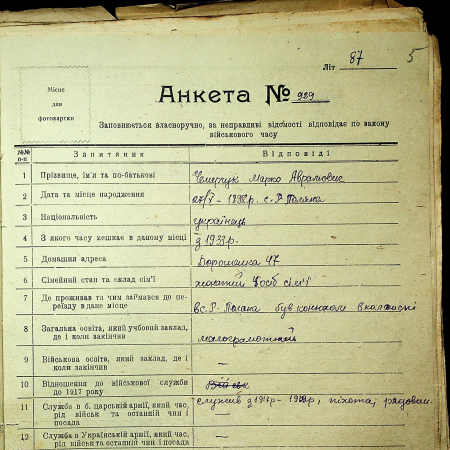 Літ 87 5
Місце
для
фотокартки
Анкета № 989
Заповнюється власноручно, за неправдиві відомості відповідає по закону
військового часу
№№ п-п Запитання Відповіді
1 Прізвище, ім'я та по-батькові Марко Аврамович
2 Дата та місце народження
3 Національність українець
4 З якого часу мешкає в даному місці з 1935 р.
5 Домашня адреса 47
6 Сімейний стан та склад сім'ї сім'ї
7 До проживав та чим займався до пе-
реїзду в дане місце був конюхом в колгоспі
8 Загальна освіта, який учбовий заклад,
де і коли закінчив малограмотний
9 Військова освіта, який заклад, де і
коли закінчив —
10 Відношення до військової служби
до 1917 року
11 Служба в б. царській армії, який час,
рід військ та останній чин і
посада служив з піхота, рядовим
12 Служба в Українській армії, який час,
рід військ та останній чин і посада —